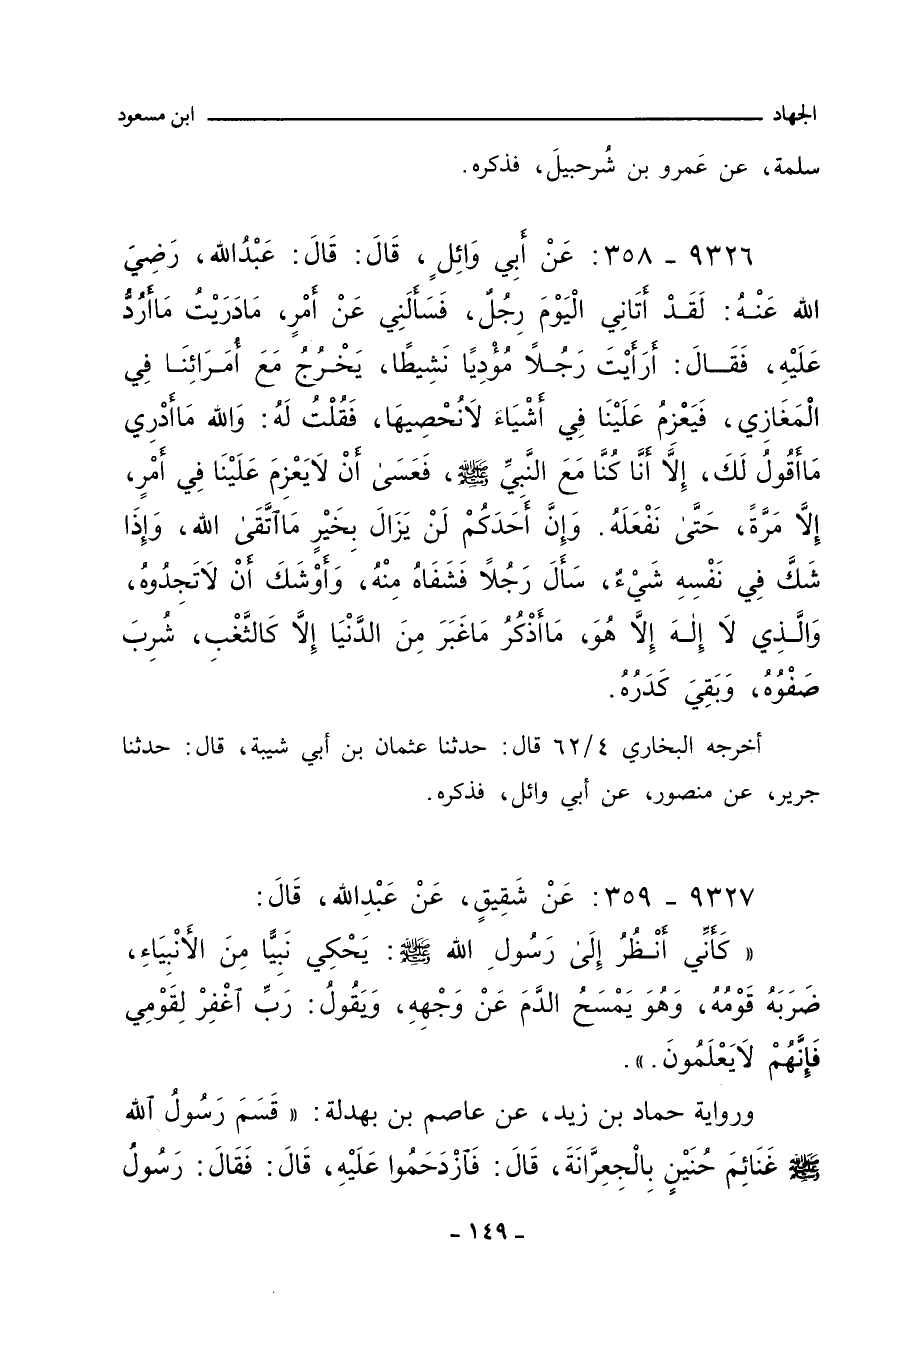 الجهاد ابن مسعود
سلمة، عن عَمرو بن شُرحبيلَ، فذكره.
٩٣٢٦ - ٣٥٨: عَنْ أَبِي وَائِلٍ، قَالَ: قَالَ: عَبْدُالله، رَضِيَ
الله عَنْهُ: لَقَدْ أَتَانِي الْيَوْمَ رَجُلٌ، فَسَأَلَنِي عَنْ أَمْرٍ، مَادَرَيْتُ مَاأَرُدُّ
عَلَيْهِ، فَقَالَ: أَرَأَيْتَ رَجُلاً مُؤْدِيًا نَشِيطًا، يَخْرُجُ مَعَ أُمَرَائِنَا فِي
الْمَغَازِي، فَيَعْزِمُ عَلَيْنَا فِي أَشْيَاءَ لَانُحْصِيهَا، فَقُلْتُ لَهُ: وَالله مَاأَدْرِي
مَاأَقُولُ لَكَ، إِلاَّ أَنَّا كُنَّا مَعَ النَّبِيِّ ﷺ، فَعَسَىٰ أَنْ لَايَعْزِمَ عَلَيْنَا فِي أَمْرٍ،
إِلاَّ مَرَّةً، حَتَّىٰ نَفْعَلَهُ. وَإِنَّ أَحَدَكُمْ لَنْ يَزَالَ بِخَيْرٍ مَاٱتَّقَىٰ الله، وَإِذَا
شَكَّ فِي نَفْسِهِ شَيْءٌ، سَأَلَ رَجُلاً فَشَفَاهُ مِنْهُ، وَأَوْشَكَ أَنْ لَاتَجِدُوهُ،
وَالَّذِي لَا إِلٰهَ إِلاَّ هُوَ، مَاأَذْكُرُ مَاغَبَرَ مِنَ الدُّنْيَا إِلاَّ كَالثَّغْبِ، شُرِبَ
صَفْوُهُ، وَبَقِيَ كَدَرُهُ.
أخرجه البخاري ٦٢/٤ قال: حدثنا عثمان بن أبي شيبة، قال: حدثنا
جرير، عن منصور، عن أبي وائل، فذكره.
٩٣٢٧ - ٣٥٩: عَنْ شَقِيقٍ، عَنْ عَبْدِالله، قَالَ:
« كَأَنِّي أَنْظُرُ إِلَىٰ رَسُولِ الله ﷺ: يَحْكِي نَبِيًّا مِنَ الأَنْبِيَاءِ،
ضَرَبَهُ قَوْمُهُ، وَهُوَ يَمْسَحُ الدَّمَ عَنْ وَجْهِهِ، وَيَقُولُ: رَبِّ ٱغْفِرْ لِقَوْمِي
فَإِنَّهُمْ لَايَعْلَمُونَ. ».
ورواية حماد بن زيد، عن عاصم بن بهدلة: « قَسَمَ رَسُولُ ٱلله
ﷺ غَنَائِمَ حُنَيْنٍ بِالْجِعِرَّانَةَ، قَالَ: فَٱزْدَحَمُوا عَلَيْهِ، قَالَ: فَقَالَ: رَسُولُ
- ١٤٩ -